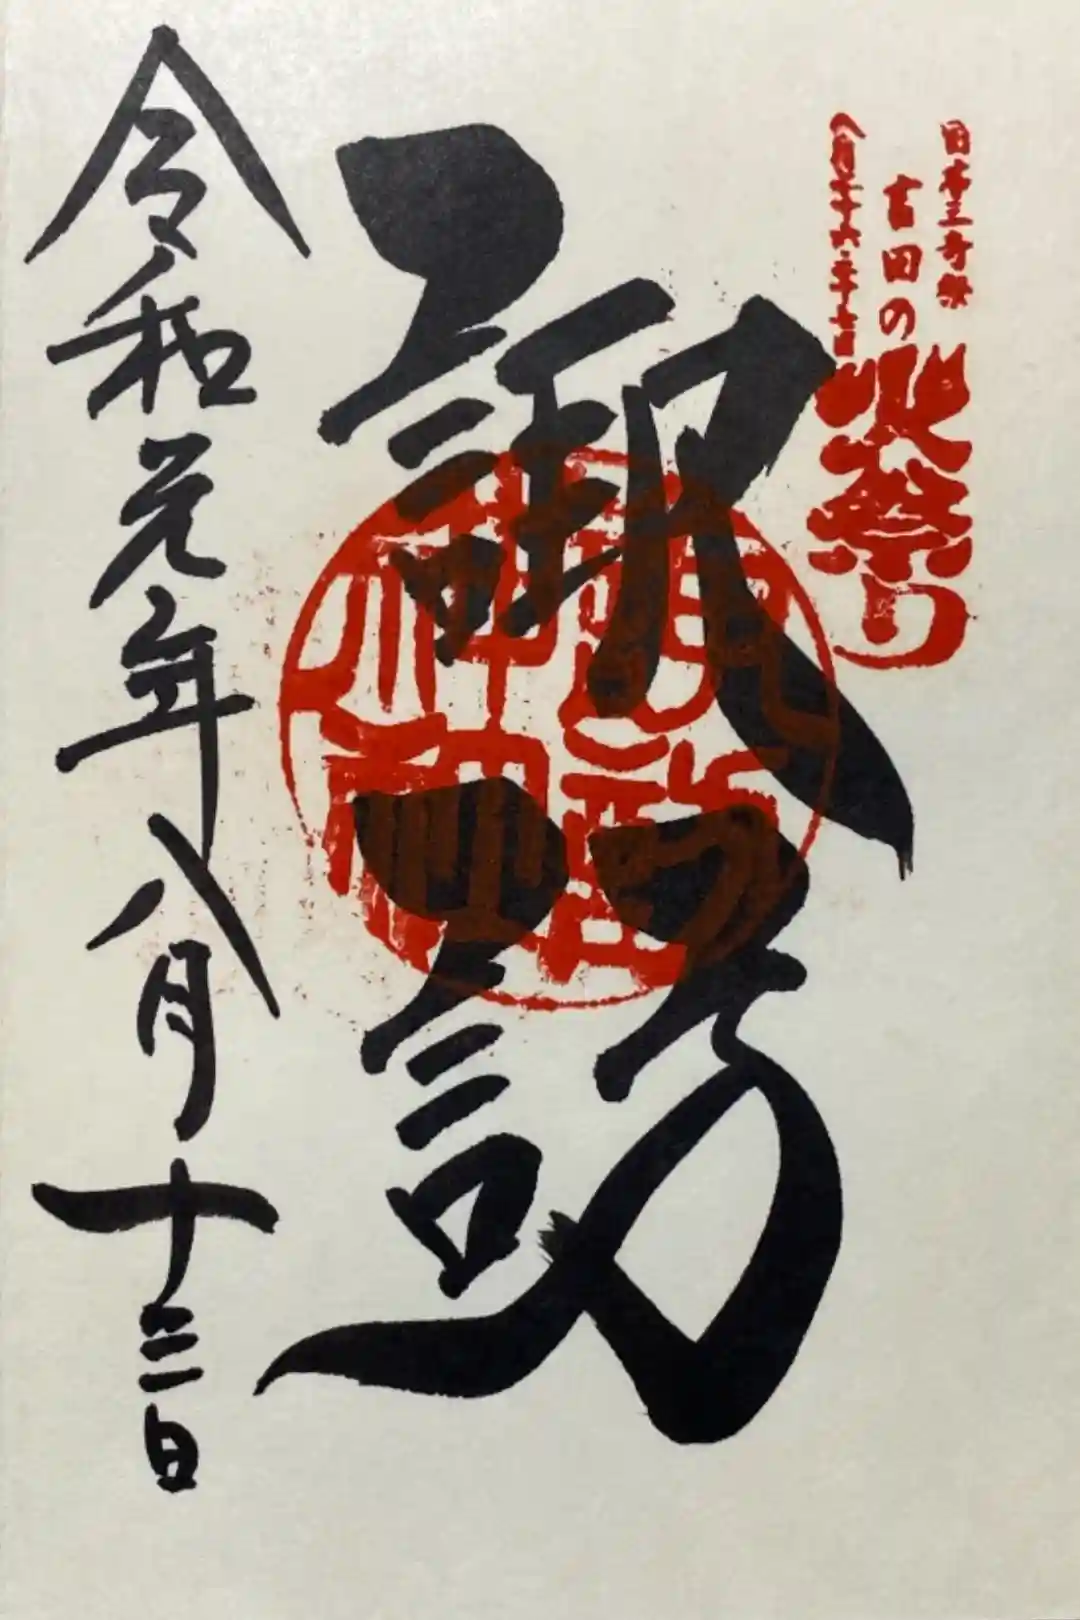 日本三奇祭
吉田の火祭り
八月二十六・二十七日
諏訪
令和元年八月十三日